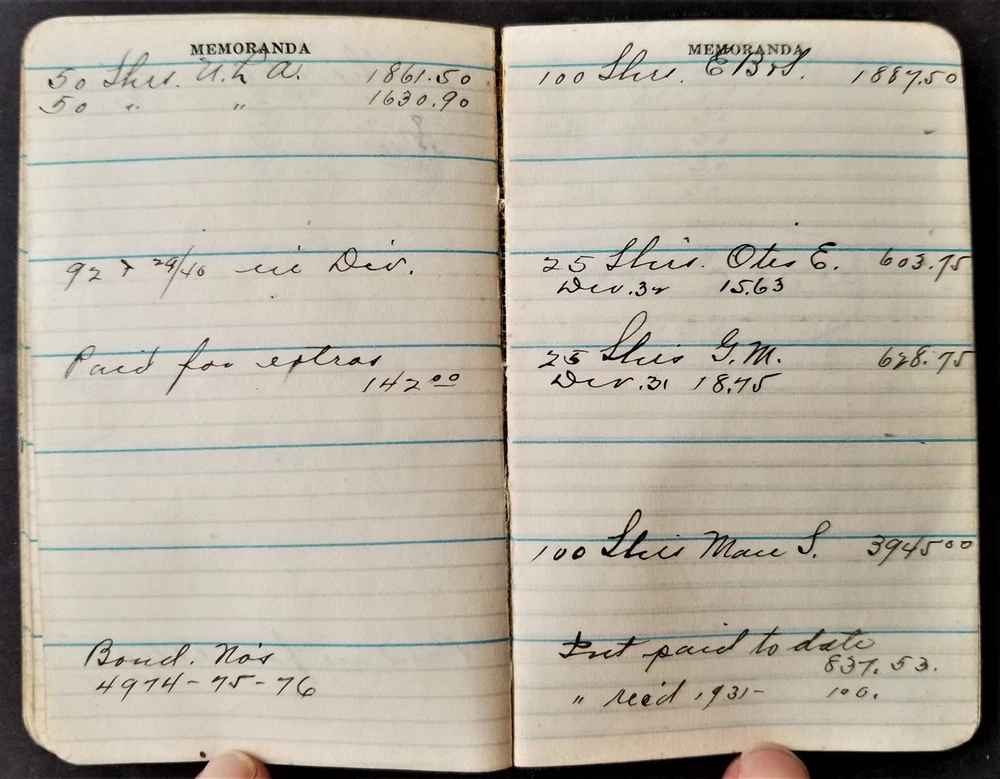 MEMORANDA
50 Shrs. U.L A. 1861.50
50 " " 1630.90
92 & 29/40 in Div.
Paid for extras
142 00
Bond. No's
4974-75-76
MEMORANDA
100 Shrs. E B&S. 1887.50
25 Shrs. Otis E. 603.75
Div. 32 15.63
25 Shrs G.M. 628.75
Div. 31 18.75
100 Shrs S. 3945 00
Int paid to date
837.53.
" rec'd 1931- 100.